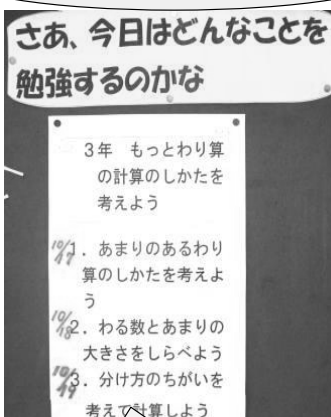 さあ、今日はどんなことを
勉強するのかな
3年 もっとわり算
の計算のしかたを
考えよう
10/17 1. あまりのあるわり
算のしかたを考えよ
う
10/18 2. わる数とあまりの
大きさをしらべよう
10/19 3. 分け方のちがいを
考えて計算しよう